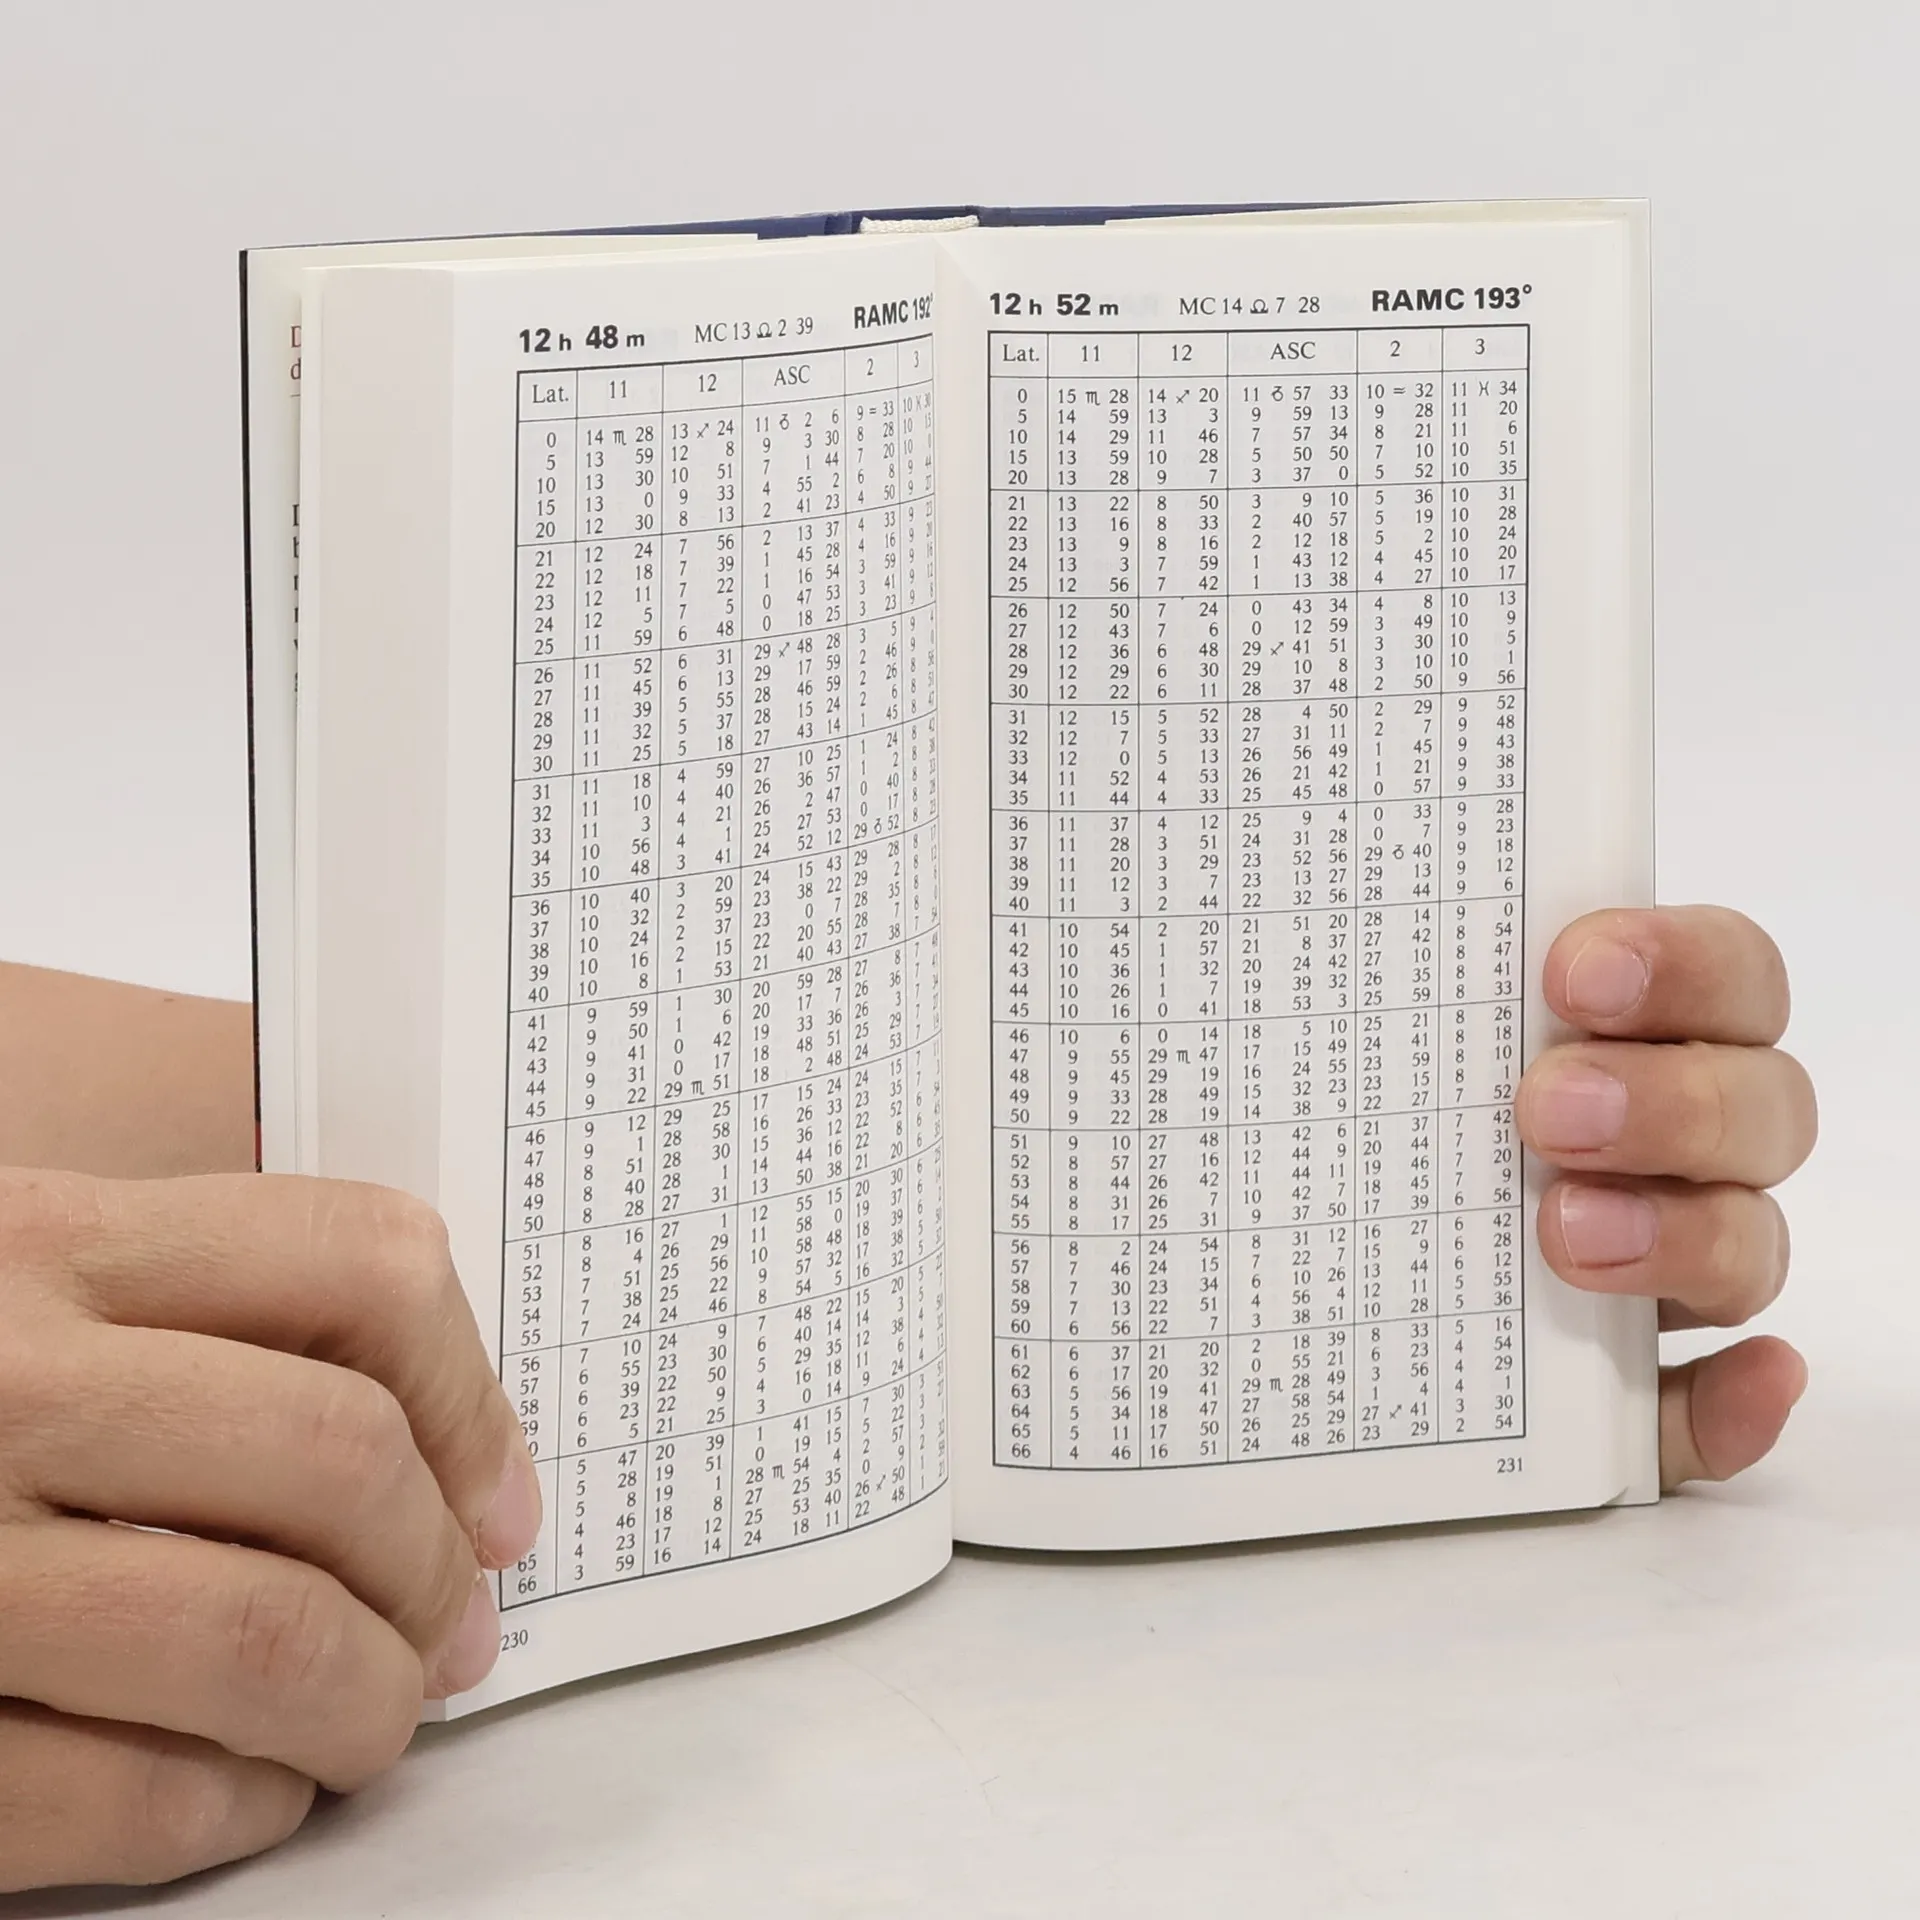 12 h 48 m MC 13 ♎ 2 39 RAMC 192°
Lat. 11 12 ASC 2 3
0 14 ♏ 28 13 ♐ 24 11 ♑ 2 6 9 ♒ 33 10 ♓ 30
5 13 59 12 8 9 3 30 8 28 10 15
10 13 30 10 51 7 1 44 7 20 10
15 13 0 9 33 4 55 2 6 8 9 44
20 12 30 8 13 2 41 23 4 50 9 27
21 12 24 7 56 2 13 37 4 33 9 23
22 12 18 7 39 1 45 28 4 16 9 20
23 12 11 7 22 1 16 54 3 59 9 16
24 12 5 7 5 0 47 53 3 41 9 12
25 11 59 6 48 0 18 25 3 23 9 8
26 11 52 6 31 29 ♐ 48 28 3 5 9 4
27 11 45 6 13 29 17 59 2 46 9
28 11 39 5 55 28 46 59 2 26 8
29 11 32 5 37 28 15 24 2 6 8
30 11 25 5 18 27 43 14 1 45 8 47
31 11 18 4 59 27 10 25 1 24 8
32 11 10 4 40 26 36 57 1 2 8
33 11 3 4 21 26 2 47 0 40 8
34 10 56 4 1 25 27 53 0 17 8
35 10 48 3 41 24 52 12 29 ♑ 52 8
36 10 40 3 20 24 15 43 29 28 8
37 10 32 2 59 23 38 22 29 2 8
38 10 24 2 37 23 0 7 28 35 8
39 10 16 2 15 22 20 55 28 7 8
40 10 8 1 53 21 40 43 27 38 7
41 9 59 1 30 20 59 28 27 8 7
42 9 50 1 6 20 17 7 26 36 7
43 9 41 0 42 19 33 36 26 3 7
44 9 31 0 17 18 48 51 25 29 7
45 9 22 29 ♏ 51 18 2 48 24 53 7
46 9 12 29 25 17 15 24 24 15 7
47 9 1 28 58 16 26 33 23 35 7
48 8 51 28 30 15 36 12 22 52 6
49 8 40 28 1 14 44 16 22 8 6
50 8 28 27 31 13 50 38 21 20 6
51 8 16 27 1 12 55 15 20 30 6
52 8 4 26 29 11 58 0 19 37 6
53 7 51 25 56 10 58 48 18 39 6
54 7 38 25 22 9 57 32 17 38 5
55 7 24 24 46 8 54 5 16 32 5
56 7 10 24 9 7 48 22 15 20 5
57 6 55 23 30 6 40 14 14 3 5
58 6 39 22 50 5 29 35 12 38 4
59 6 23 22 9 4 16 18 11 6 4
0 6 5 21 25 3 0 14 9 24 4
5 47 20 39 1 41 15 7 30 3
5 28 19 51 0 19 15 5 22 3
5 8 19 1 28 ♏ 54 4 2 57 3
4 46 18 8 27 25 35 0 9 2
65 4 23 17 12 25 53 40 26 ♐ 50 1
66 3 59 16 14 24 18 11 22 48 1
230
12 h 52 m MC 14 ♎ 7 28 RAMC 193°
Lat. 11 12 ASC 2 3
0 15 ♏ 28 14 ♐ 20 11 ♑ 57 33 10 ♒ 32 11 ♓ 34
5 14 59 13 3 9 59 13 9 28 11 20
10 14 29 11 46 7 57 34 8 21 11 6
15 13 59 10 28 5 50 50 7 10 10 51
20 13 28 9 7 3 37 0 5 52 10 35
21 13 22 8 50 3 9 10 5 36 10 31
22 13 16 8 33 2 40 57 5 19 10 28
23 13 9 8 16 2 12 18 5 2 10 24
24 13 3 7 59 1 43 12 4 45 10 20
25 12 56 7 42 1 13 38 4 27 10 17
26 12 50 7 24 0 43 34 4 8 10 13
27 12 43 7 6 0 12 59 3 49 10 9
28 12 36 6 48 29 ♐ 41 51 3 30 10 5
29 12 29 6 30 29 10 8 3 10 10 1
30 12 22 6 11 28 37 48 2 50 9 56
31 12 15 5 52 28 4 50 2 29 9 52
32 12 7 5 33 27 31 11 2 7 9 48
33 12 0 5 13 26 56 49 1 45 9 43
34 11 52 4 53 26 21 42 1 21 9 38
35 11 44 4 33 25 45 48 0 57 9 33
36 11 37 4 12 25 9 4 0 33 9 28
37 11 28 3 51 24 31 28 0 7 9 23
38 11 20 3 29 23 52 56 29 ♑ 40 9 18
39 11 12 3 7 23 13 27 29 13 9 12
40 11 3 2 44 22 32 56 28 44 9 6
41 10 54 2 20 21 51 20 28 14 9 0
42 10 45 1 57 21 8 37 27 42 8 54
43 10 36 1 32 20 24 42 27 10 8 47
44 10 26 1 7 19 39 32 26 35 8 41
45 10 16 0 41 18 53 3 25 59 8 33
46 10 6 0 14 18 5 10 25 21 8 26
47 9 55 29 ♏ 47 17 15 49 24 41 8 18
48 9 45 29 19 16 24 55 23 59 8 10
49 9 33 28 49 15 32 23 23 15 8 1
50 9 22 28 19 14 38 9 22 27 7 52
51 9 10 27 48 13 42 6 21 37 7 42
52 8 57 27 16 12 44 9 20 44 7 31
53 8 44 26 42 11 44 11 19 46 7 20
54 8 31 26 7 10 42 7 18 45 7 9
55 8 17 25 31 9 37 50 17 39 6 56
56 8 2 24 54 8 31 12 16 27 6 42
57 7 46 24 15 7 22 7 15 9 6 28
58 7 30 23 34 6 10 26 13 44 6 12
59 7 13 22 51 4 56 4 12 11 5 55
60 6 56 22 7 3 38 51 10 28 5 36
61 6 37 21 20 2 18 39 8 33 5 16
62 6 17 20 32 0 55 21 6 23 4 54
63 5 56 19 41 29 ♏ 28 49 3 56 4 29
64 5 34 18 47 27 58 54 1 4 4 1
65 5 11 17 50 26 25 29 27 ♐ 41 3 30
66 4 46 16 51 24 48 26 23 29 2 54
231